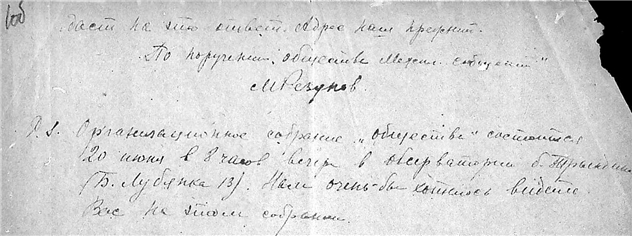 106
даст на это ответ. Адрес наш прежний.
По поручению „общества Межпл. сообщений"
М Резунов.
P.S. Организационное собрание „общества" состоится
20 июня в 8 часов вечера в обсерватории б. Трындина
(Б. Лубянка 13). Нам очень-бы хотелось видеть
Вас на этом собрании.